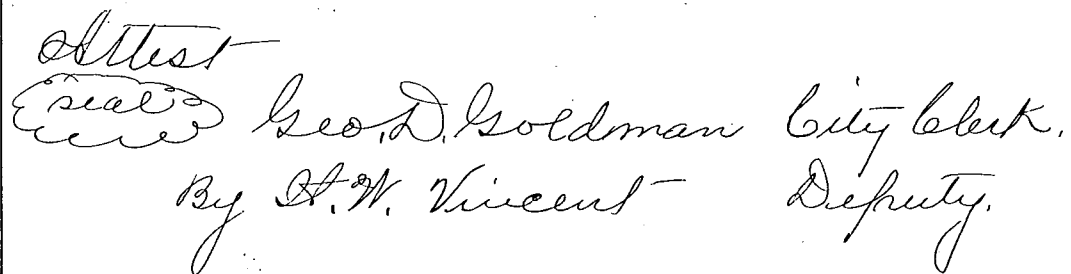 Attest
seal Geo. D. Goldman City Clerk.
By H. W. Vincent Deputy.